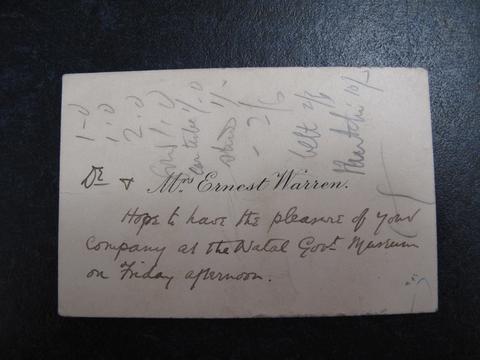 Dr & Mrs Ernest Warren.
Hope to have the pleasure of your
company at the Natal Govt Museum
on Friday afternoon.
1-0
1.0
2.0
1.0
1/-
- 2/6
belt 2/6